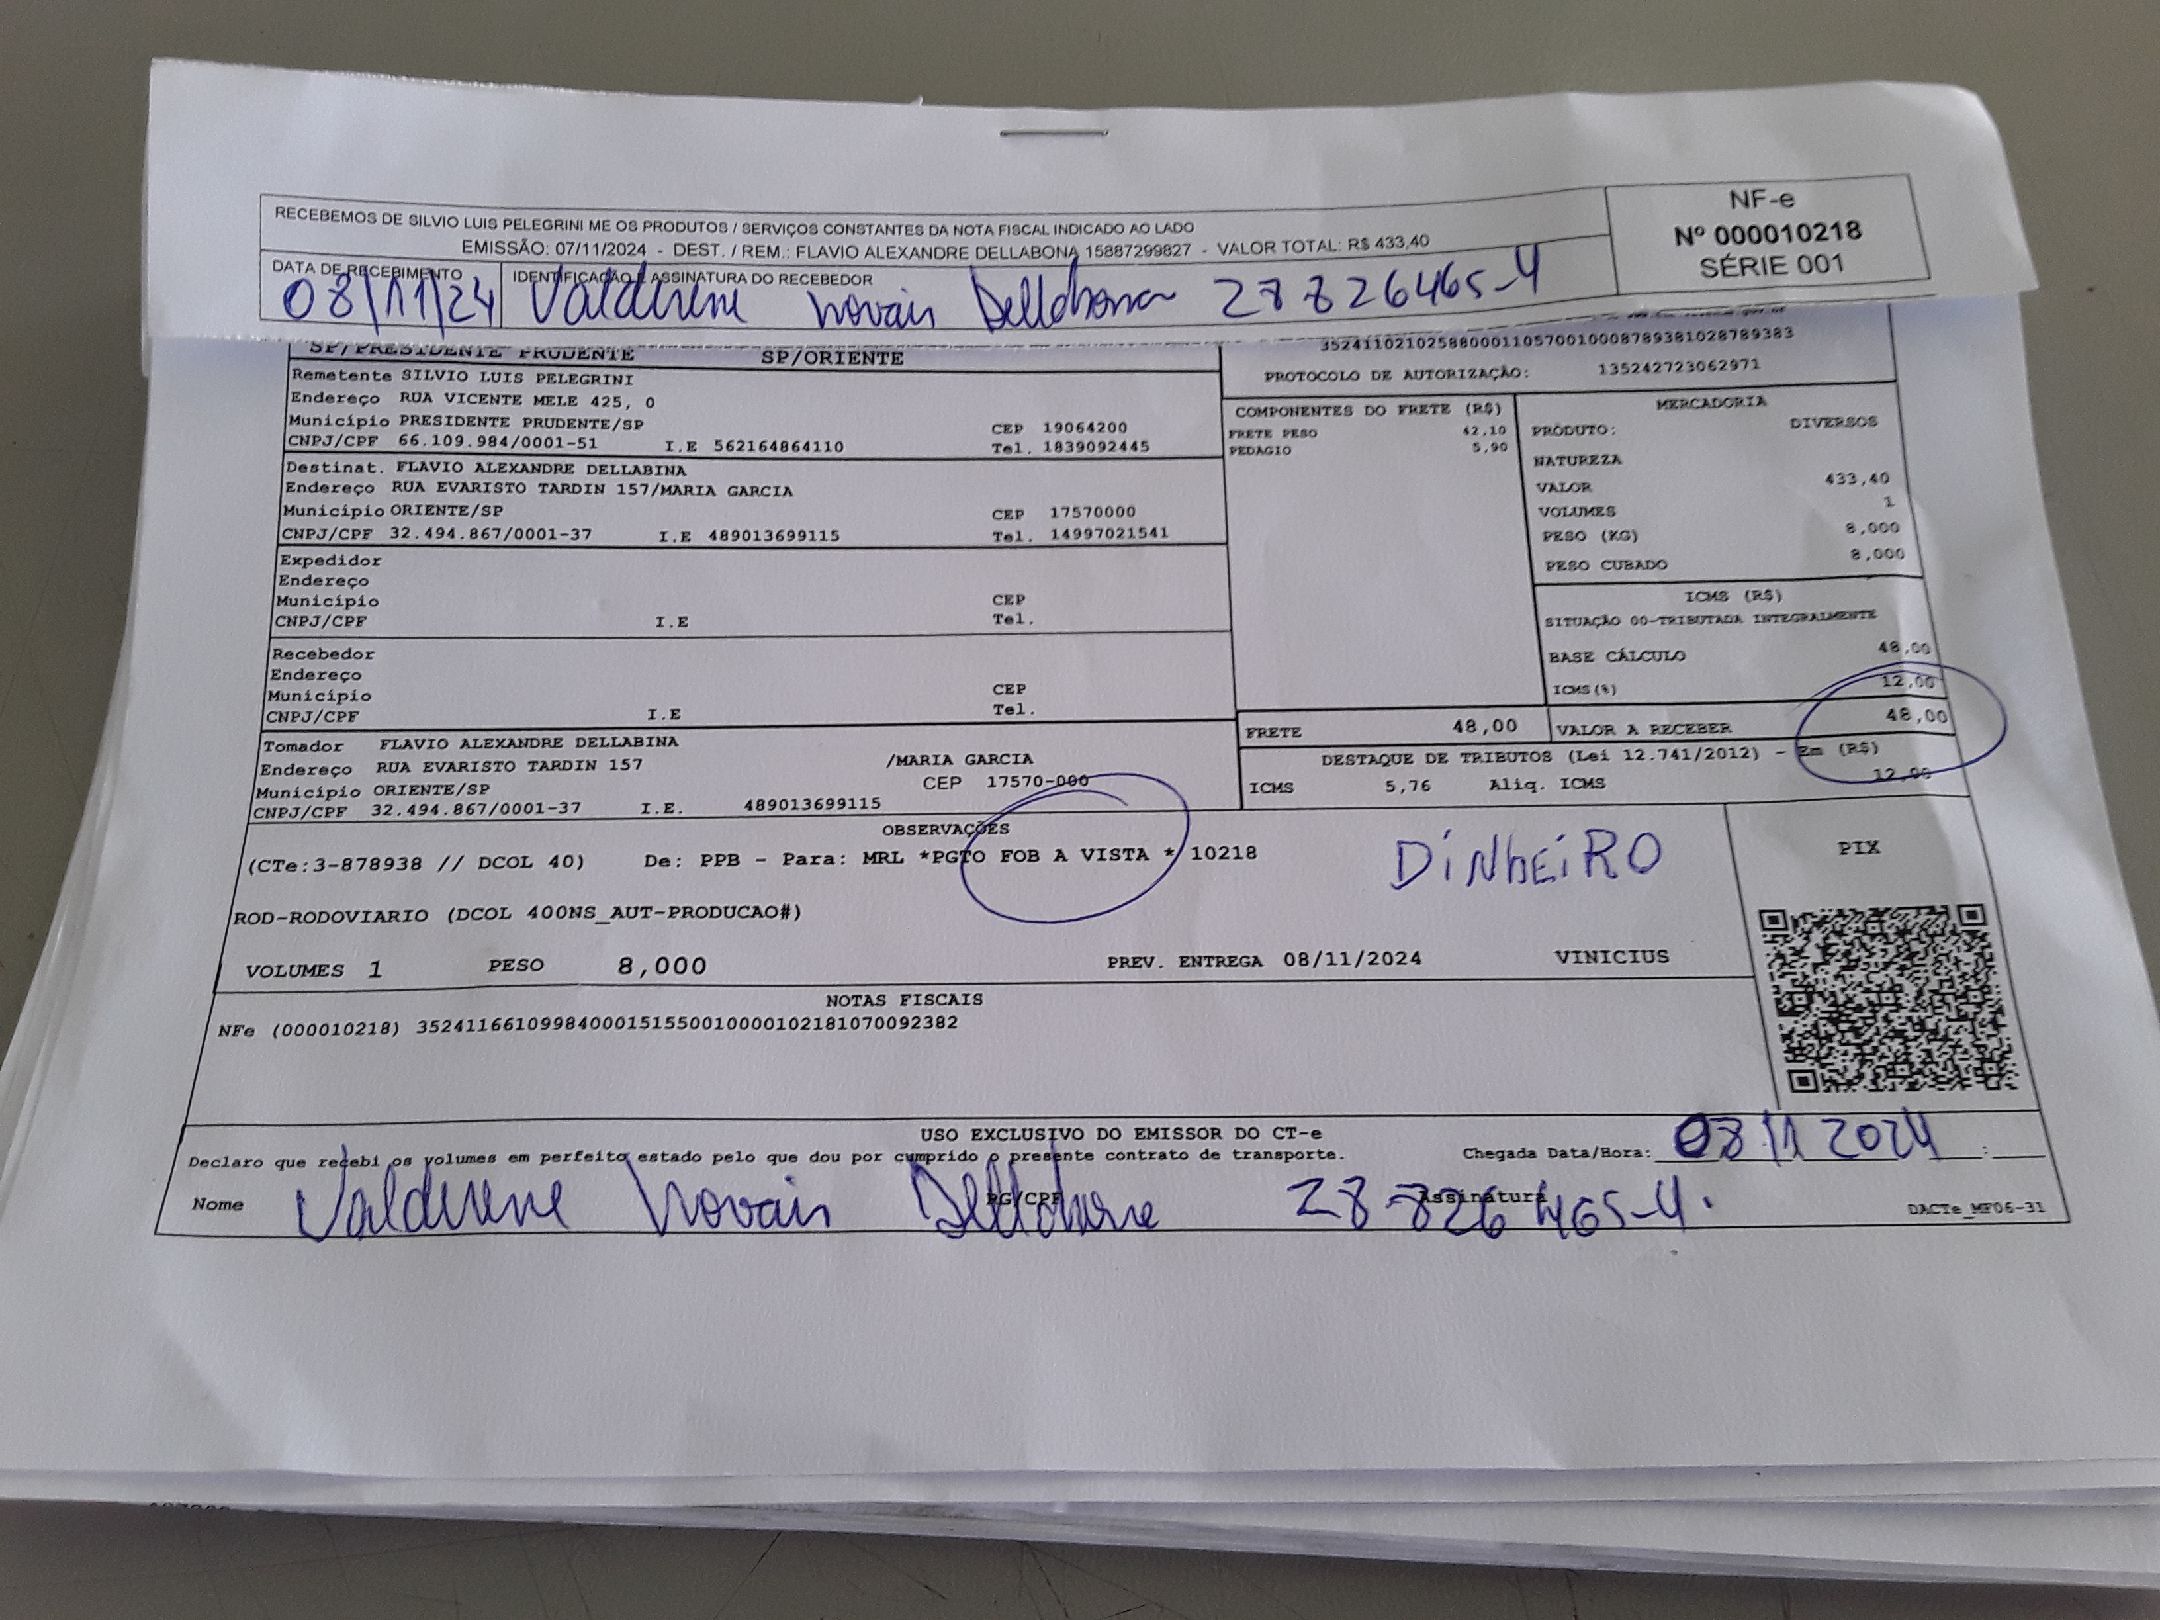 RECEBEMOS DE SILVIO LUIS PELEGRINI ME OS PRODUTOS / SERVIÇOS CONSTANTES DA NOTA FISCAL INDICADO AO LADO
EMISSÃO: 07/11/2024 - DEST. / REM.: FLAVIO ALEXANDRE DELLABONA 15887299827 - VALOR TOTAL: R$ 433,40
NF-e
Nº 000010218
SÉRIE 001
DATA DE RECEBIMENTO
08/11/24
IDENTIFICAÇÃO E ASSINATURA DO RECEBEDOR
Valdirene Novais Dellabona 28826465-4
SP/PRESIDENTE PRUDENTE SP/ORIENTE
35241102102588000110570010008789381028789383
PROTOCOLO DE AUTORIZAÇÃO: 135242723062971
Remetente SILVIO LUIS PELEGRINI
Endereço RUA VICENTE MELE 425, 0
Município PRESIDENTE PRUDENTE/SP CEP 19064200
CNPJ/CPF 66.109.984/0001-51 I.E 562164864110 Tel. 1839092445
Destinat. FLAVIO ALEXANDRE DELLABINA
Endereço RUA EVARISTO TARDIN 157/MARIA GARCIA
Município ORIENTE/SP CEP 17570000
CNPJ/CPF 32.494.867/0001-37 I.E 489013699115 Tel. 14997021541
Expedidor
Endereço
Município CEP
CNPJ/CPF I.E Tel.
Recebedor
Endereço
Município CEP
CNPJ/CPF I.E Tel.
Tomador FLAVIO ALEXANDRE DELLABINA
Endereço RUA EVARISTO TARDIN 157 /MARIA GARCIA
Município ORIENTE/SP CEP 17570-000
CNPJ/CPF 32.494.867/0001-37 I.E. 489013699115
COMPONENTES DO FRETE (R$)
FRETE PESO 42,10
PEDAGIO 5,90
MERCADORIA
PRODUTO: DIVERSOS
NATUREZA
VALOR 433,40
VOLUMES 1
PESO (KG) 8,000
PESO CUBADO 8,000
ICMS (R$)
SITUAÇÃO 00-TRIBUTADA INTEGRALMENTE
BASE CÁLCULO 48,00
ICMS(%) 12,00
FRETE 48,00 VALOR A RECEBER 48,00
DESTAQUE DE TRIBUTOS (Lei 12.741/2012) - Em (R$)
ICMS 5,76 Aliq. ICMS 12,00
OBSERVAÇÕES
(CTe:3-878938 // DCOL 40) De: PPB - Para: MRL *PGTO FOB A VISTA * 10218
DiNhEiRO
PIX
ROD-RODOVIARIO (DCOL 400NS_AUT-PRODUCAO#)
VOLUMES 1 PESO 8,000 PREV. ENTREGA 08/11/2024 VINICIUS
NOTAS FISCAIS
NFe (000010218) 35241166109984000151550010000102181070092382
USO EXCLUSIVO DO EMISSOR DO CT-e
Declaro que recebi os volumes em perfeito estado pelo que dou por cumprido o presente contrato de transporte. Chegada Data/Hora: 08 11 2024 :
Nome Valdirene Novais Dellabona RG/CPF 28 826 465-4. Assinatura
DACTe_MF06-31